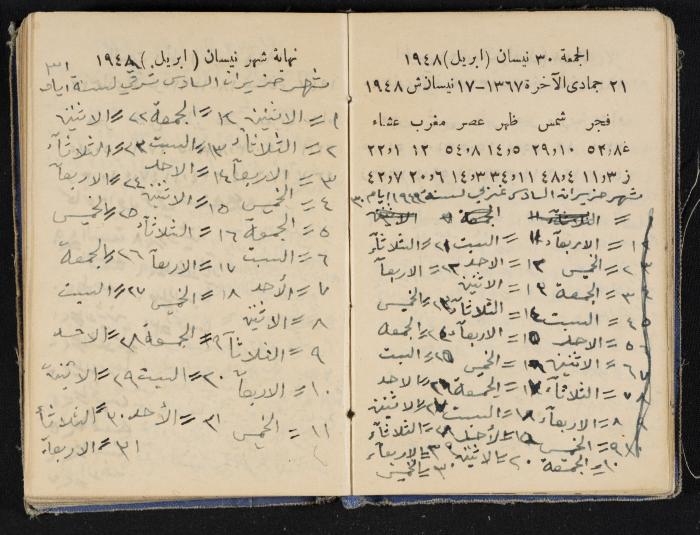 الجمعة ٣٠ نيسان (ابريل) ١٩٤٨
٢١ جمادى الآخرة ١٣٦٧-١٧ نيسان ش ١٩٤٨
فجر شمس ظهر عصر مغرب عشاء
شهر حزيران السادس غربي لسنة ١٩٤٩ ايام ٣٠
الثلاثاء الجمعة الاثنين
١ = الاربعاء ١١ = السبت ٢١ = الثلاثاء
٢ = الخميس ١٢ = الاحد ٢٢ = الاربعاء
٣ = الجمعة ١٣ = الاثنين
٤ = السبت ١٤ = الثلاثاء ٢٣ = الخميس
٥ = الاحد ١٥ = الاربعاء ٢٤ = الجمعة
٦ = الاثنين ١٦ = الخميس ٢٥ = السبت
٧ = الثلاثاء ١٧ = الجمعة ٢٦ = الاحد
٨ = الاربعاء ١٨ = السبت ٢٧ = الاثنين
٩ = الخميس ١٩ = الأحد ٢٨ = الثلاثاء
١٠ = الجمعة ٢٠ = الاثنين ٢٩ = الاربعاء
٣٠ = الخميس
نهاية شهر نيسان (ابريل) ١٩٤٨
٣١
شهر حزيران السادس شرقي لسنة ايام
١ = الاثنين ١٢ = الجمعة ٢٢ = الاثنين
٢ = الثلاثاء ١٣ = السبت ٢٣ = الثلاثاء
٣ = الاربعاء ١٤ = الاحد ٢٤ = الاربعاء
٤ = الخميس ١٥ = الاثنين ٢٥ = الخميس
٥ = الجمعة ١٦ = الثلاثاء
٦ = السبت ١٧ = الاربعاء ٢٦ = الجمعة
٧ = الأحد ١٨ = الخميس ٢٧ = السبت
٨ = الاثنين
٩ = الثلاثاء ١٩ = الجمعة ٢٨ = الاحد
١٠ = الاربعاء ٢٠ = السبت ٢٩ = الاثنين
١١ = الخميس ٢١ = الأحد ٣٠ = الثلاثاء
٣١ = الاربعاء